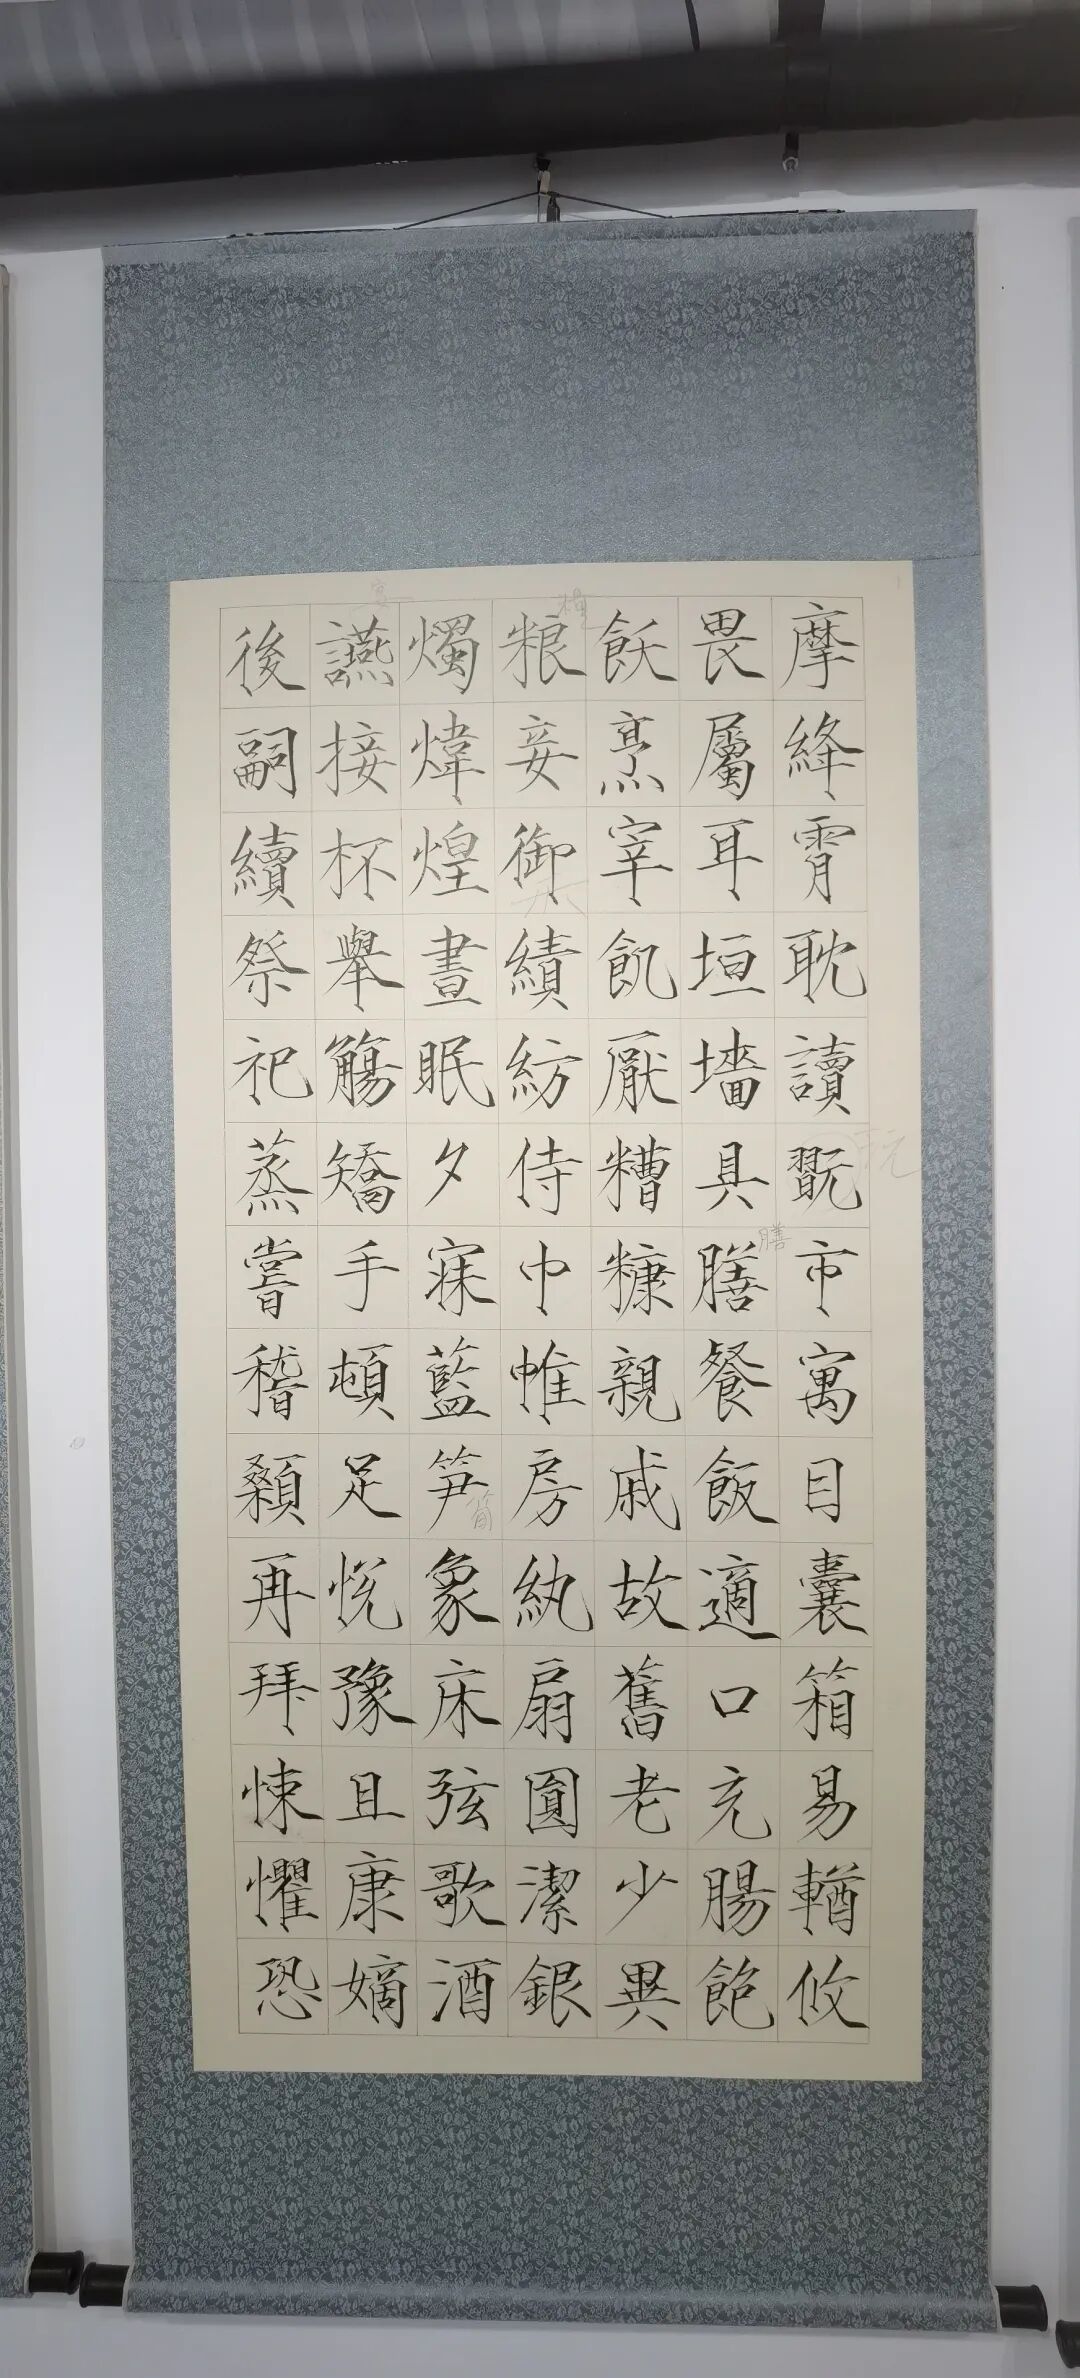 摩絳霄耽讀翫市寓目囊箱易輶攸
畏屬耳垣墻具膳餐飯適口充腸飽
飫烹宰飢厭糟糠親戚故舊老少異
粮妾御績紡侍巾帷房紈扇圓潔銀
燭煒煌晝眠夕寐藍笋象床弦歌酒
讌接杯舉觴矯手頓足悅豫且康嫡
後嗣續祭祀蒸嘗稽顙再拜悚懼恐
玩
膳
糧
筍
宴